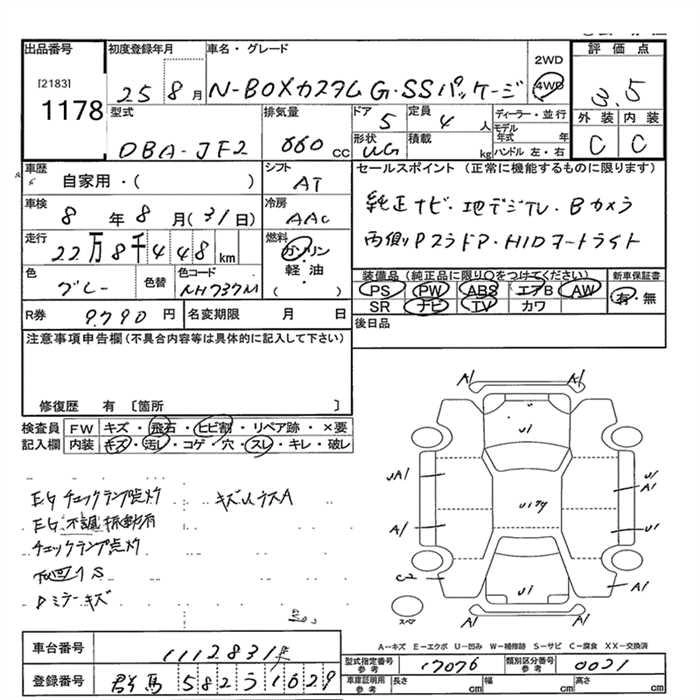 出品番号
[2183]
1178
初度登録年月
25 8月
車名・グレード
N-BOXカスタム G・SSパッケージ
2WD
4WD
評価点
3.5
外装 内装
C C
型式
DBA-JF2
排気量
660 cc
ドア
5
定員
4 人
形状
積載
kg
ディーラー・並行
モデル年式 年
ハンドル 左・右
車歴
自家用・( )
シフト
AT
セールスポイント (正常に機能するものに限ります)
純正ナビ・地デジTV・Bカメラ
両側Pスラドア・HIDヘッドライト
車検
8年8月(31日)
冷房
AAC
走行
22万8千448km
燃料
ガソリン・軽油・
( )
色
グレー
色替
色コード
NH737M
装備品 (純正品に限り〇をつけてください)
PS PW ABS エアB AW
SR ナビ TV カワ
新車保証書
有・無
R券 9,790円
名変期限 月 日
後日品
注意事項申告欄(不具合内容等は具体的に記入して下さい)
修復歴 有[箇所 ]
検査員記入欄
FW キズ・飛石・ヒビ割・リペア跡・×要
内装 キズ・汚レ・コゲ・穴・スレ・キレ・破レ
EGチェックランプ点灯
キズ
EG不調振動有
チェックランプ点灯
S
Dミラーキズ
A1 A1
U1
UA1 U1
A1
U1
A1 U1
C2 U1 A1
A1 A1
スペア
A-キズ E-エクボ U-凹み W-補修跡 S-サビ C-腐食 XX-交換済
車台番号 1112831
型式指定番号 参考 17076
類別区分番号 参考 0021
登録番号 群馬 582 う 1629
車庫証明用 参考 長さ cm 幅 cm 高さ cm